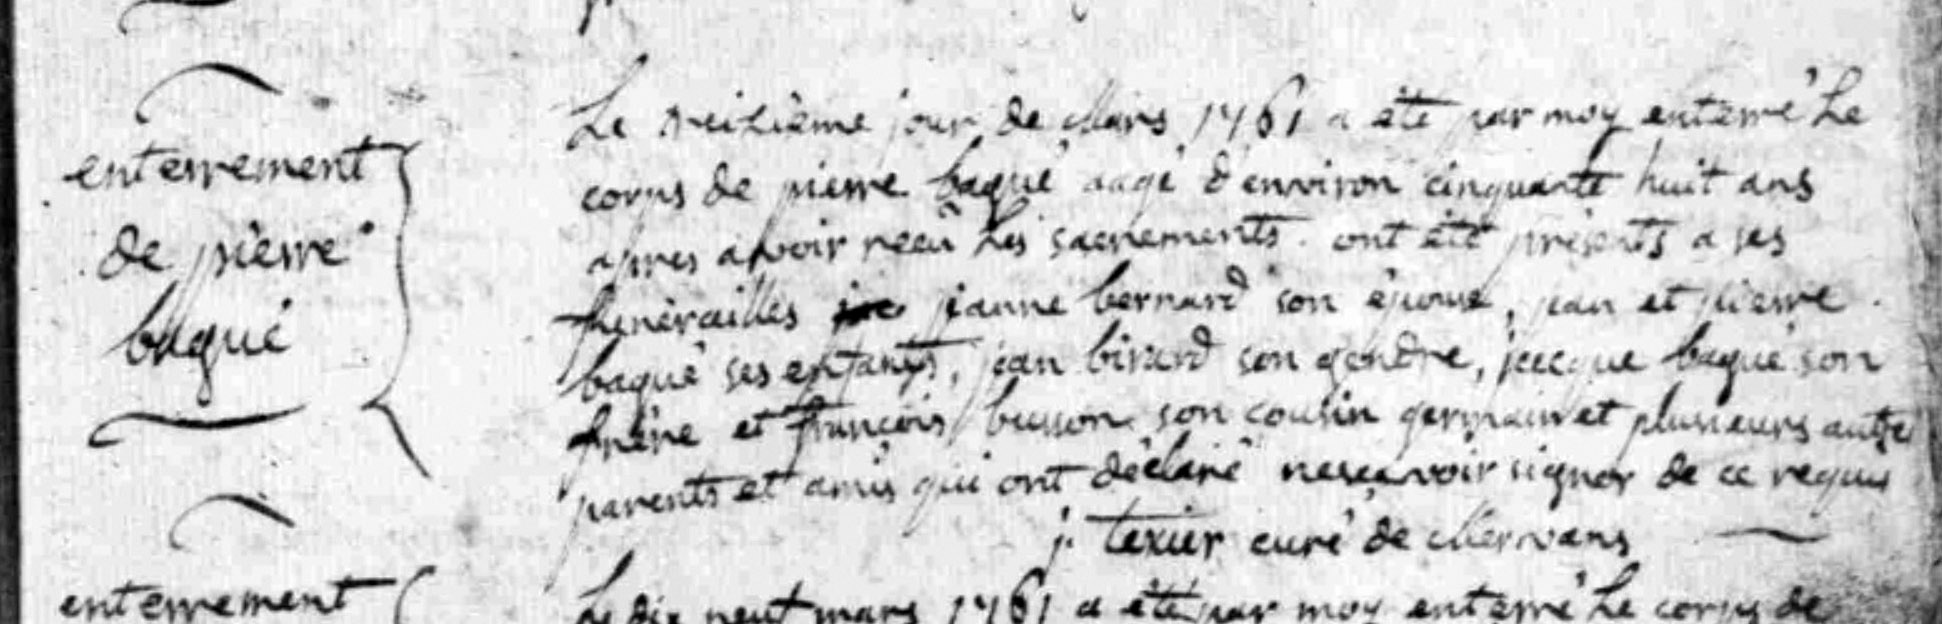 enterrement
de pierre
baqué
Le treizième jour de Mars 1761 a été par moy enterré Le
corps de pierre baqué aagé d'environ cinquante huit ans
apres avoir recu Les sacrements. ont été présents a ses
funérailles jeanne bernard son épouse, jean et pierre
baqué ses enfants, jean birard son gendre, jacque baqué son
frère et francois busson son cousin germain et plusieurs autre
parents et amis qui ont déclaré nescavoir signer de ce requis
j. texier curé de Mervans
enterrement
Le dix neuf mars 1761 a été par moy enterré Le corps de